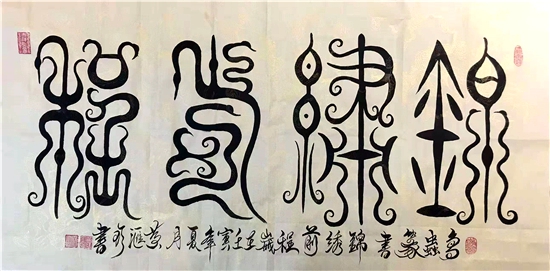 錦繡前程
鸟蟲篆書錦绣前程歲在壬寅年夏月黄滙書